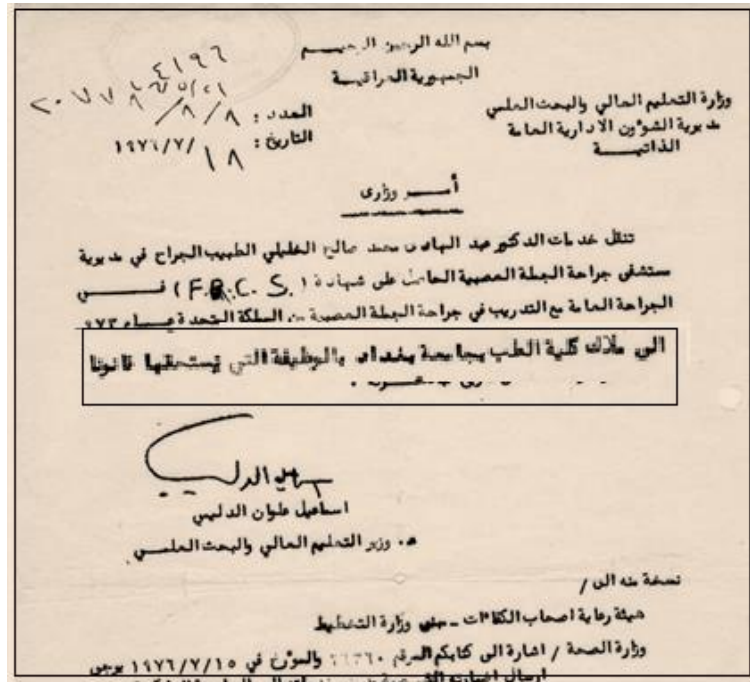 بسم الله الرحمن الرحيم
الجمهورية العراقية
وزارة التعليم العالي والبحث العلمي
مديرية الشؤون الادارية العامة
الذاتية
العدد :
التاريخ : ١٨/٧/١٩٧٦
أمر وزارى
تنقل خدمات الدكتور عبد الهادى محمد صالح الخليلي الطبيب الجراح في مديرية
مستشفى جراحة الجملة العصبية الحاصل على شهادة (F.R.C.S.) في
الجراحة العامة مع التدريب في جراحة الجملة العصبية من المملكة المتحدة عام ٩٧٣
الى ملاك كلية الطب بجامعة بغداد بالوظيفة التي يستحقها قانونا
اسماعيل علوان الدليمي
ء. وزير التعليم العالي والبحث العلمي
نسخة منه الى /
هيئة رعاية اصحاب الكفاءات - وزارة التخطيط
وزارة الصحة / اشارة الى كتابكم المرقم والمؤرخ في ١٩٧٦/٧/١٥ يرجى
ارسال